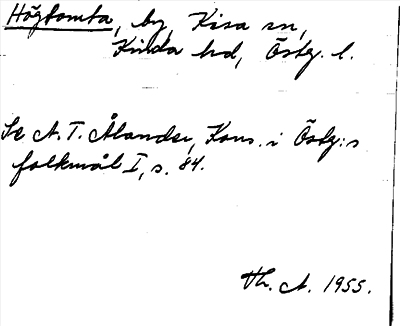 Högtomta, by, Kisa sn,
Kinda hd, Östg. l.
Se A. T. Ålander, Kons. i Östg:s
folkmål I, s. 84.
Th. A. 1955.